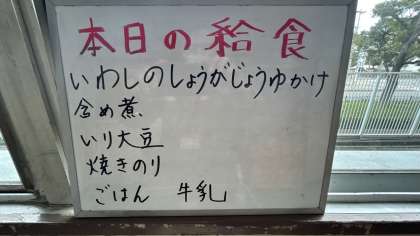 本日の給食
いわしのしょうがじょうゆかけ
含め煮
いり大豆
焼きのり
ごはん 牛乳